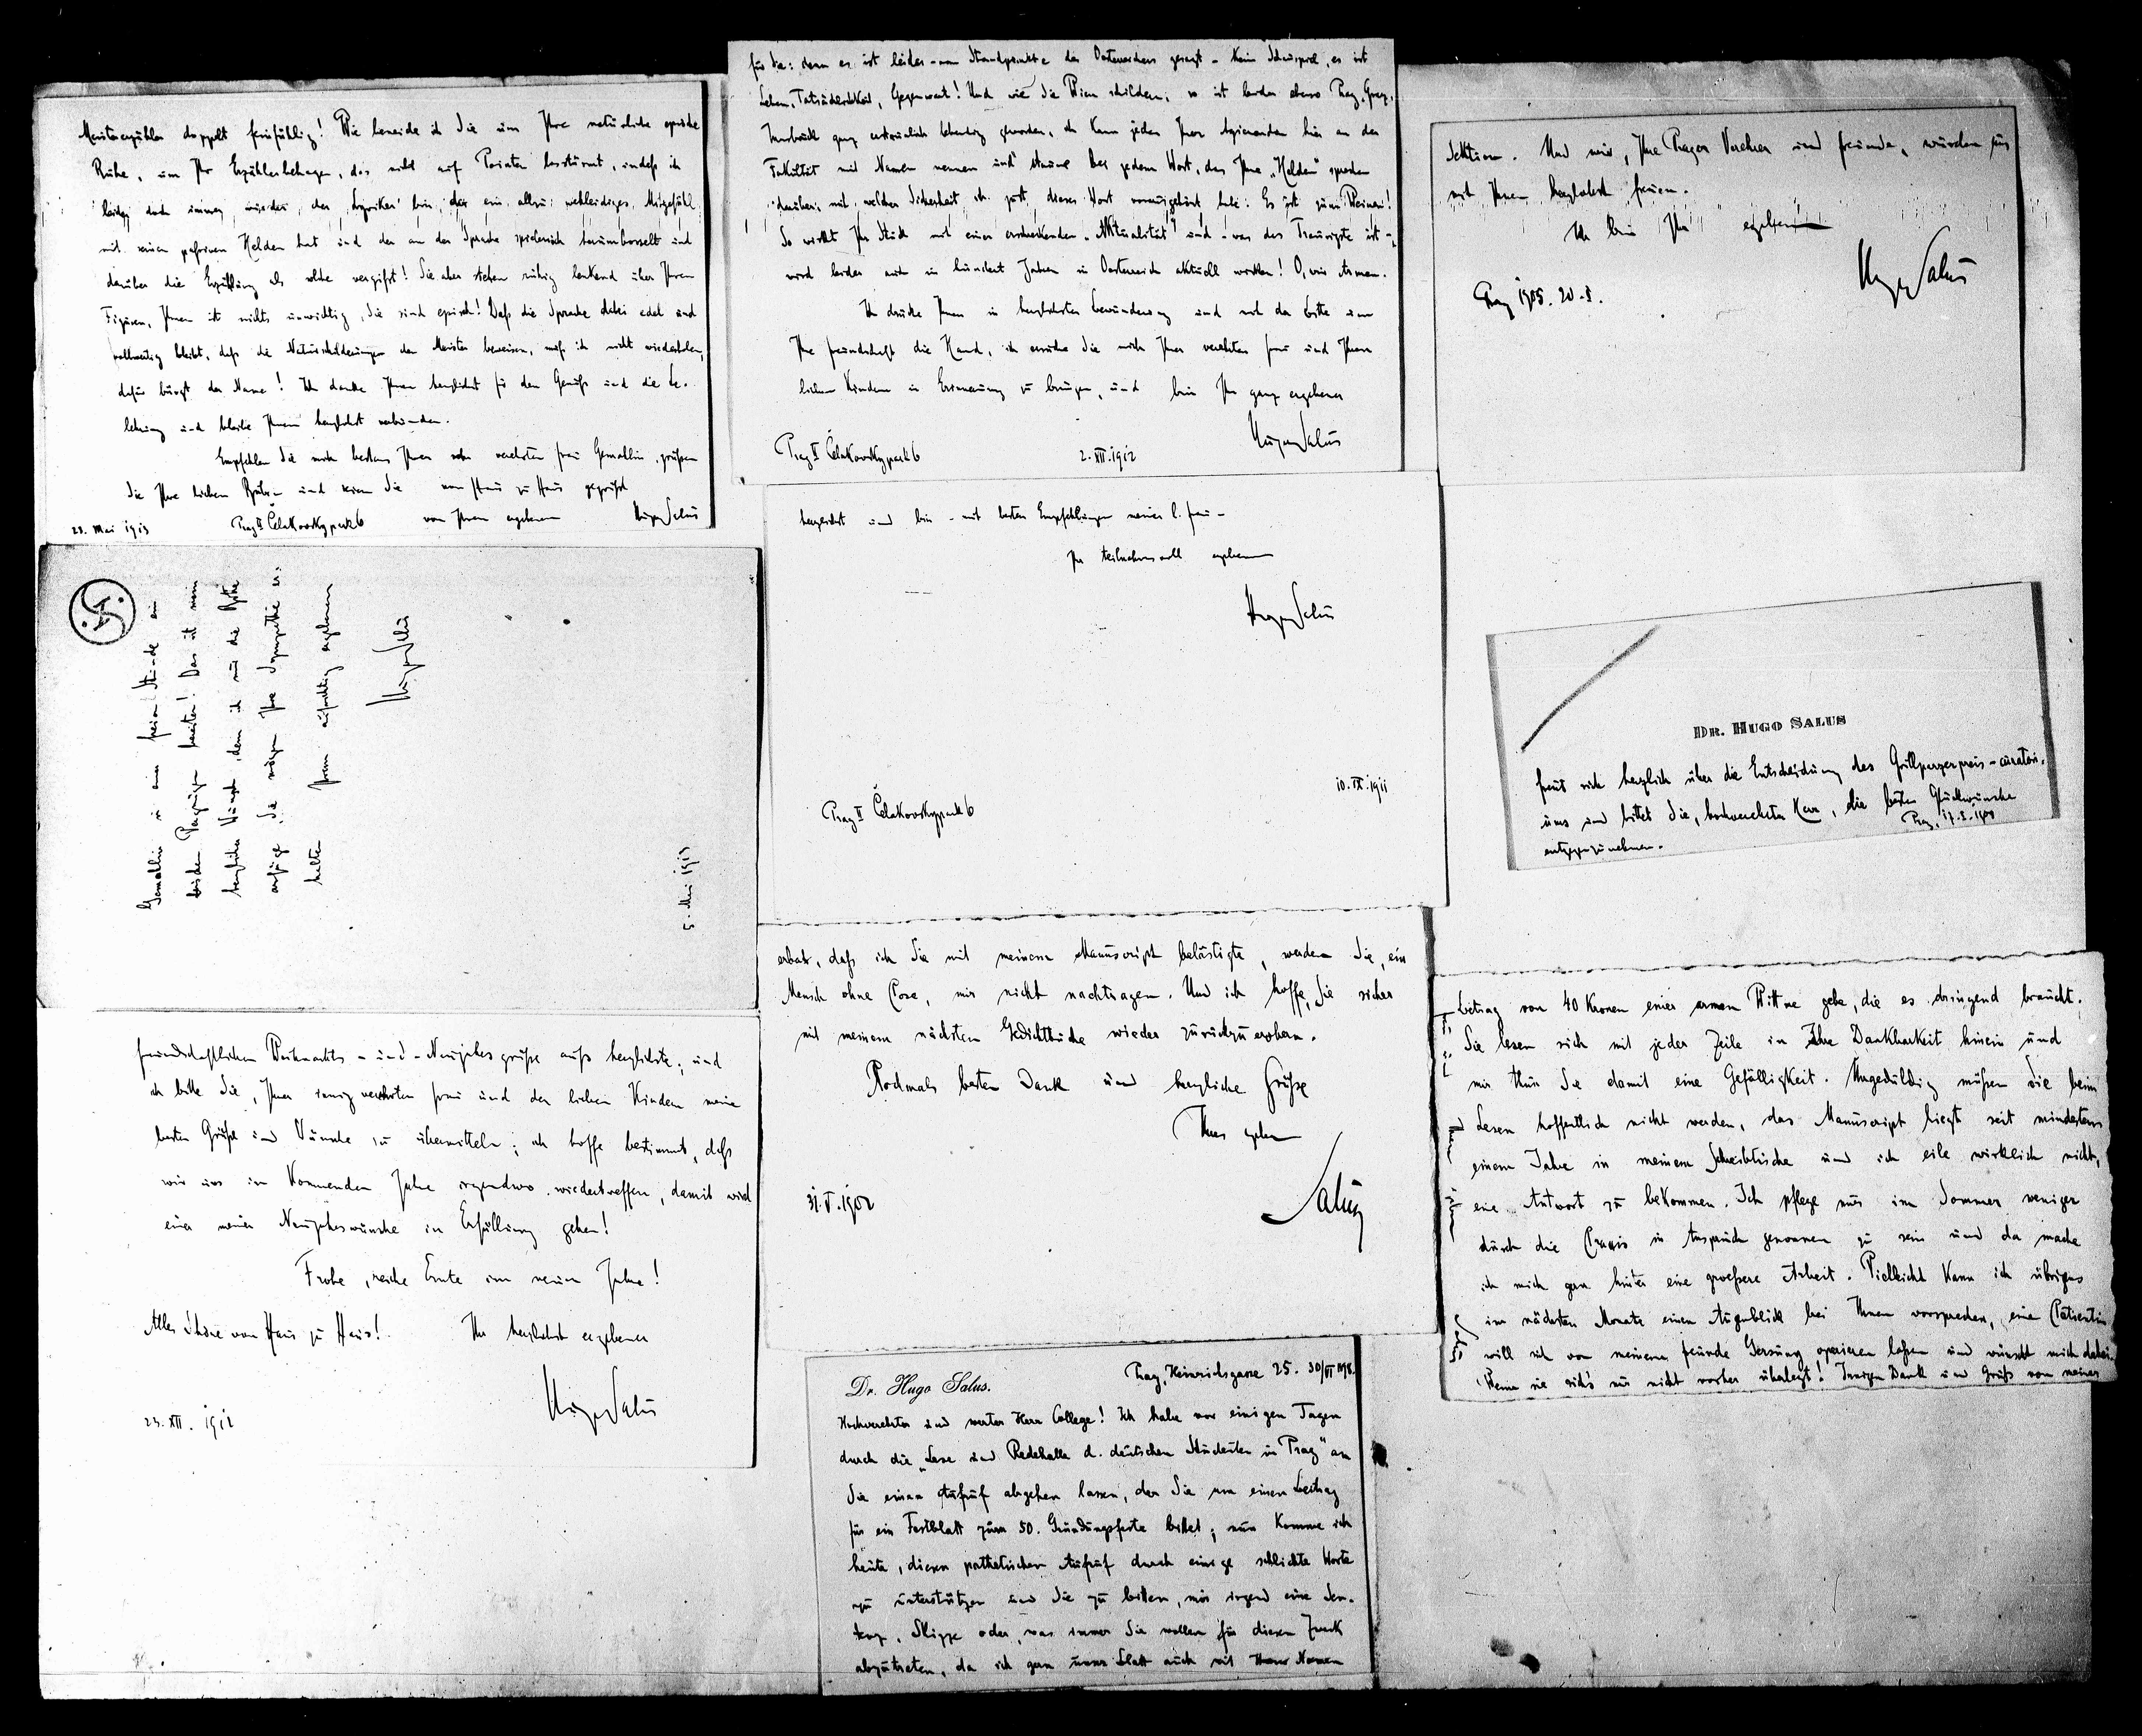 Meistererzähler doppelt feinfühlig! Wie beneide ich Sie um Ihre natürliche epische
Ruhe, um Ihr Erzählerbehagen, das nicht auf Pointen losstürmt, indeß ich
leider doch immer wieder der Lyriker bin, der ein allzu wehleidiges Mitgefühl
mit seinen passiven Helden hat und der an der Sprache spielerisch herumbosselt und
darüber die Erzählung als solche vergißt! Sie aber stehen ruhig lenkend über Ihren
Figuren, Ihnen ist nichts unwichtig, Sie sind episch! Daß die Sprache dabei edel und
vollwertig bleibt, daß die Naturschilderungen den Meister beweisen, muß ich nicht wiederholen,
dafür bürgt der Name! Ich danke Ihnen herzlichst für den Genuß und die Be-
lehrung und bleibe Ihnen herzlichst verbunden.
Empfehlen Sie mich bestens Ihrer sehr verehrten Frau Gemahlin, grüßen
Sie Ihre lieben Buben und seien Sie von Haus zu Haus gegrüßt
von Ihrem ergebenen Hugo Salus
23. Mai 1913 Prag II Čelakovskypark 6
Gemahlin in einer freien Stunde ein
bischen Vergnügen bereiten! Das ist mein
herzlicher Wunsch, dem ich nur die Bitte
anfüge, Sie mögen Ihre Sympathie er-
halten Ihrem aufrichtig ergebenen
Hugo Salus
5. Mai 1913
freundschaftlichen Weihnachts- und -Neujahrsgrüße aufs herzlichste; und
ich bitte Sie, Ihrer innig verehrten Frau und den lieben Kindern meine
besten Grüße und Wünsche zu übermitteln; ich hoffe bestimmt, daß
wir uns im kommenden Jahre irgendwo wiedertreffen, damit wird
einer meiner Neujahrswünsche in Erfüllung gehen!
Frohe, reiche Ernte im neuen Jahre!
Alles Schöne von Haus zu Haus! Ihr herzlichst ergebener
Hugo Salus
23. XII. 1912
für Sie: denn es ist leider - vom Standpunkte des Oesterreichers gesagt - kein Schauspiel, es ist
Leben, Tatsächlichkeit, Gegenwart! Und wie Sie Wien schildern, so ist leider ebenso Prag, Graz,
Innsbruck ganz lebendig geworden, ich kann jeden Ihrer Agierenden hier an der
Fakultät mit Namen nennen und staune bei jedem Wort, das Ihre „Helden" sprechen
darüber, mit welcher Sicherheit ich just dieses Wort vorausgehört habe: Es ist zum Weinen!
So wirkt Ihr Stück mit einer erschreckenden „Aktualität" und - was das Traurigste ist -,
wird leider auch in hundert Jahren in Oesterreich aktuell wirken! O, wir Armen.
Ich drücke Ihnen in herzlichster Bewunderung und mit der Bitte um
Ihre Freundschaft die Hand, ich ersuche Sie mich Ihrer verehrten Frau und Ihren
lieben Kindern in Erinnerung zu bringen, und bin Ihr ganz ergebener
Hugo Salus
Prag II Čelakovskypark 6 2. XII. 1912
herzlichst und bin - mit besten Empfehlungen meiner l. Frau -
Ihr teilnahmsvoll ergebener
Hugo Salus
10. IX. 1911
Prag II Čelakovskypark 6
erbat, daß ich Sie mit meinem Manuscript belästigte, werden Sie, ein
Mensch ohne Pose, mir nicht nachtragen. Und ich hoffe, Sie sicher
mit meinem nächsten Gedichtbuche wieder zurückzuerobern.
Nochmals besten Dank und herzliche Grüße
Ihres ergebenen
Salus
31. V. 1902
Dr. Hugo Salus.
Prag, Heinrichsgasse 25. 30/VI 1898.
Hochverehrter und werter Herr College! Ich habe vor einigen Tagen
durch die „Lese und Redehalle d. deutschen Studenten in Prag" an
Sie einen Aufruf abgehen lassen, der Sie um einen Beitrag
für ein Festblatt zum 50. Gründungsfeste bittet; nun komme ich
heute, diesen pathetischen Aufruf durch einige schlichte Worte
zu unterstützen und Sie zu bitten, mir irgend eine Sen-
tenz, Skizze oder, was immer Sie wollen für diesen Zweck
abzutreten, da ich gern unser Blatt auch mit Ihrem Namen
Sektion. Und wir, Ihre Prager Verehrer und Freunde, würden uns
mit Ihnen herzlichst freuen.
Ich bin Ihr ergebener
Hugo Salus
Prag 1905. 20.
Dr. Hugo Salus
freut sich herzlich über die Entscheidung des Grillparzerpreis-curatori-
ums und bittet Sie, hochverehrter Herr, die besten Glückwünsche
entgegenzunehmen.
Prag, 17.
Betrag von 40 Kronen einer armen Wittwe gebe, die es dringend braucht.
Sie lesen sich mit jeder Zeile in Ihre Dankbarkeit hinein und
mir thun Sie damit eine Gefälligkeit. Ungeduldig müßen Sie beim
Lesen hoffentlich nicht werden, das Manuscript liegt seit mindestens
einem Jahre in meinem Schreibtische und ich eile wirklich nicht,
eine Antwort zu bekommen. Ich pflege nur im Sommer weniger
durch die Praxis in Anspruch genommen zu sein und da mache
ich mich gern hinter eine groeßere Arbeit. Vielleicht kann ich übrigens
im nächsten Monate einen Augenblick bei Ihnen vorsprechen, eine Patientin
will sich von meinem Freunde Gersuny operieren laßen und wünscht mich dabei.
Wenn sie sich's nur nicht vorher überlegt! Innigen Dank und Gruß von meiner